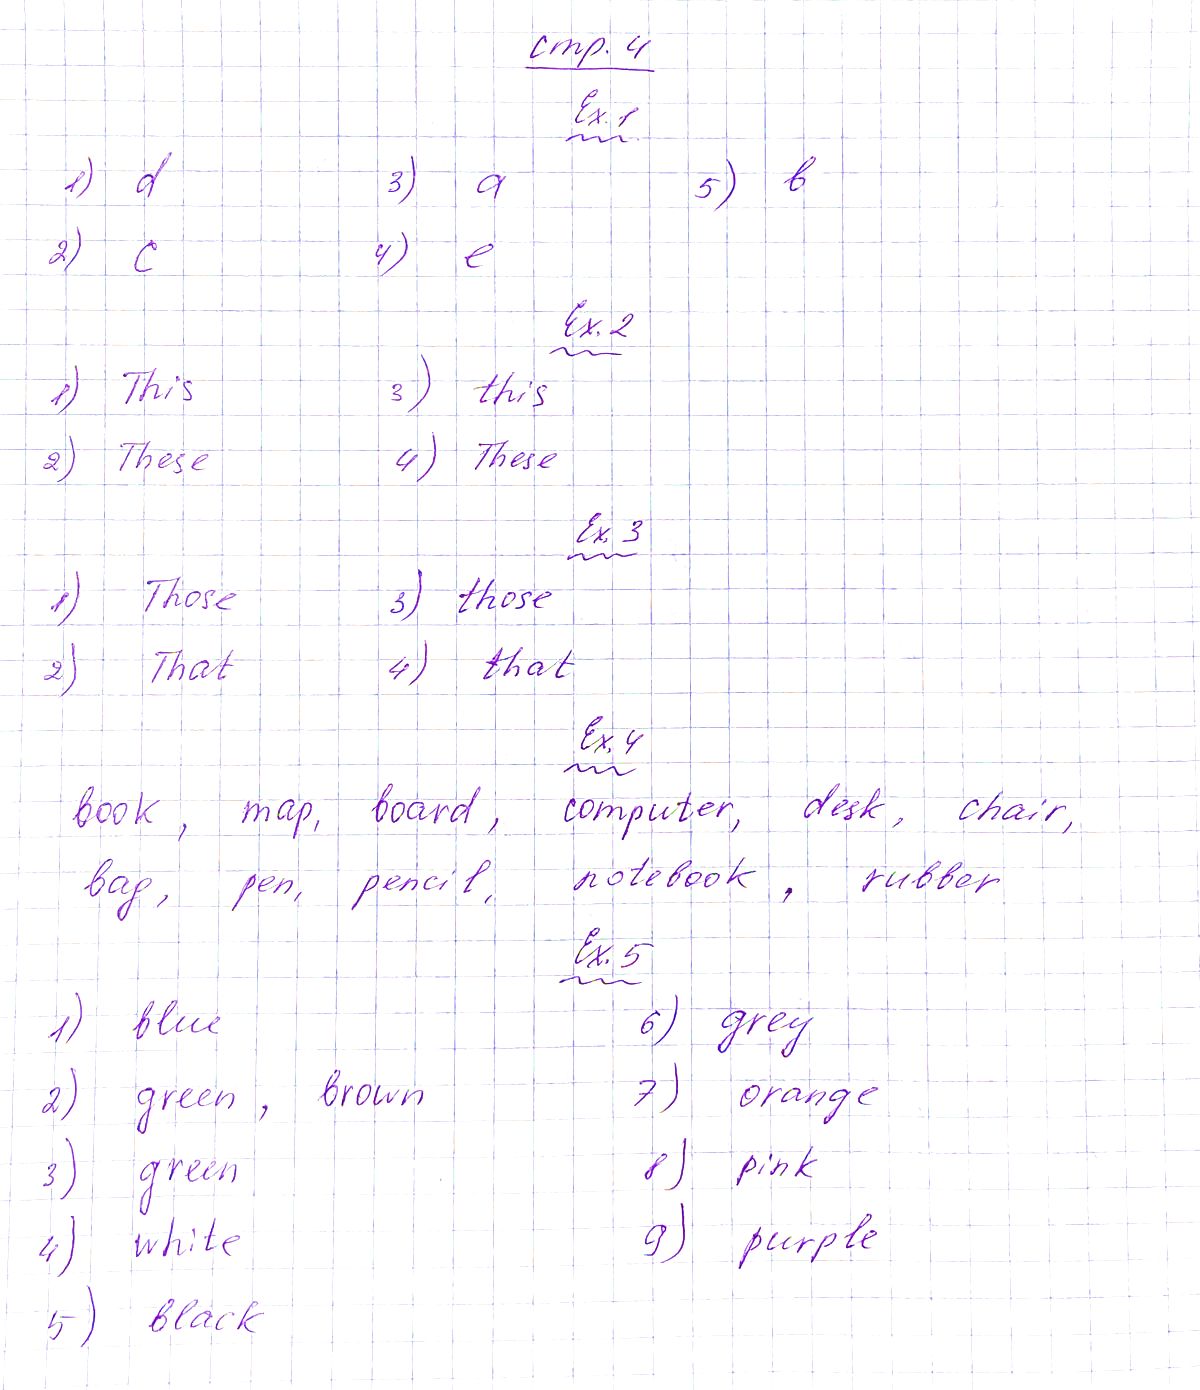 стр. 4
Ex. 1
1) d 3) a 5) b
2) c 4) e
Ex. 2
1) This 3) this
2) These 4) These
Ex. 3
1) Those 3) those
2) That 4) that
Ex. 4
book, map, board, computer, desk, chair,
bag, pen, pencil, notebook, rubber
Ex. 5
1) blue 6) grey
2) green, brown 7) orange
3) green 8) pink
4) white 9) purple
5) black